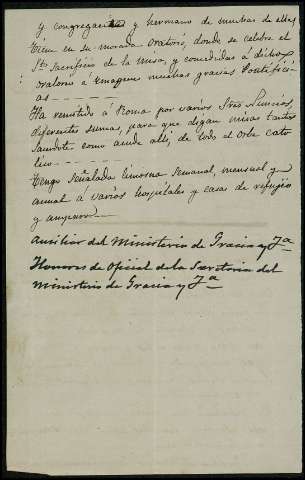 y congregaciones y hermano de muchas de ellas
Tiene en su morada oratorio, donde se celebra el
Sto Sacrificio de la misa, y concedidas á dicho
oratorio é imagenes muchas gracias Pontifici-
as
Ha remitido á Roma por varios Sres Nuncios,
diferentes sumas, para que digan misas tantos
Sacerdotes como acude allí, de todo el Orbe cató
lico
Tengo señalada limosna semanal, mensual y
anual á varios hospitales y casas de refugio
y amparo
Auxiliar del Ministerio de Gracia y Ja
Honores de Oficial de la Secretaria del
Ministerio de Gracia y Ja